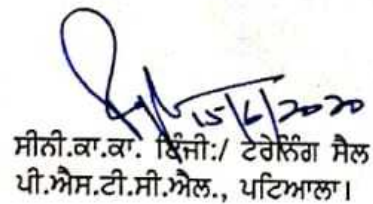 15/6/2020
ਸੀਨੀ.ਕਾ.ਕਾ. ਇੰਜੀ:/ ਟਰੇਨਿੰਗ ਸੈਲ
ਪੀ.ਐਸ.ਟੀ.ਸੀ.ਐਲ., ਪਟਿਆਲਾ।